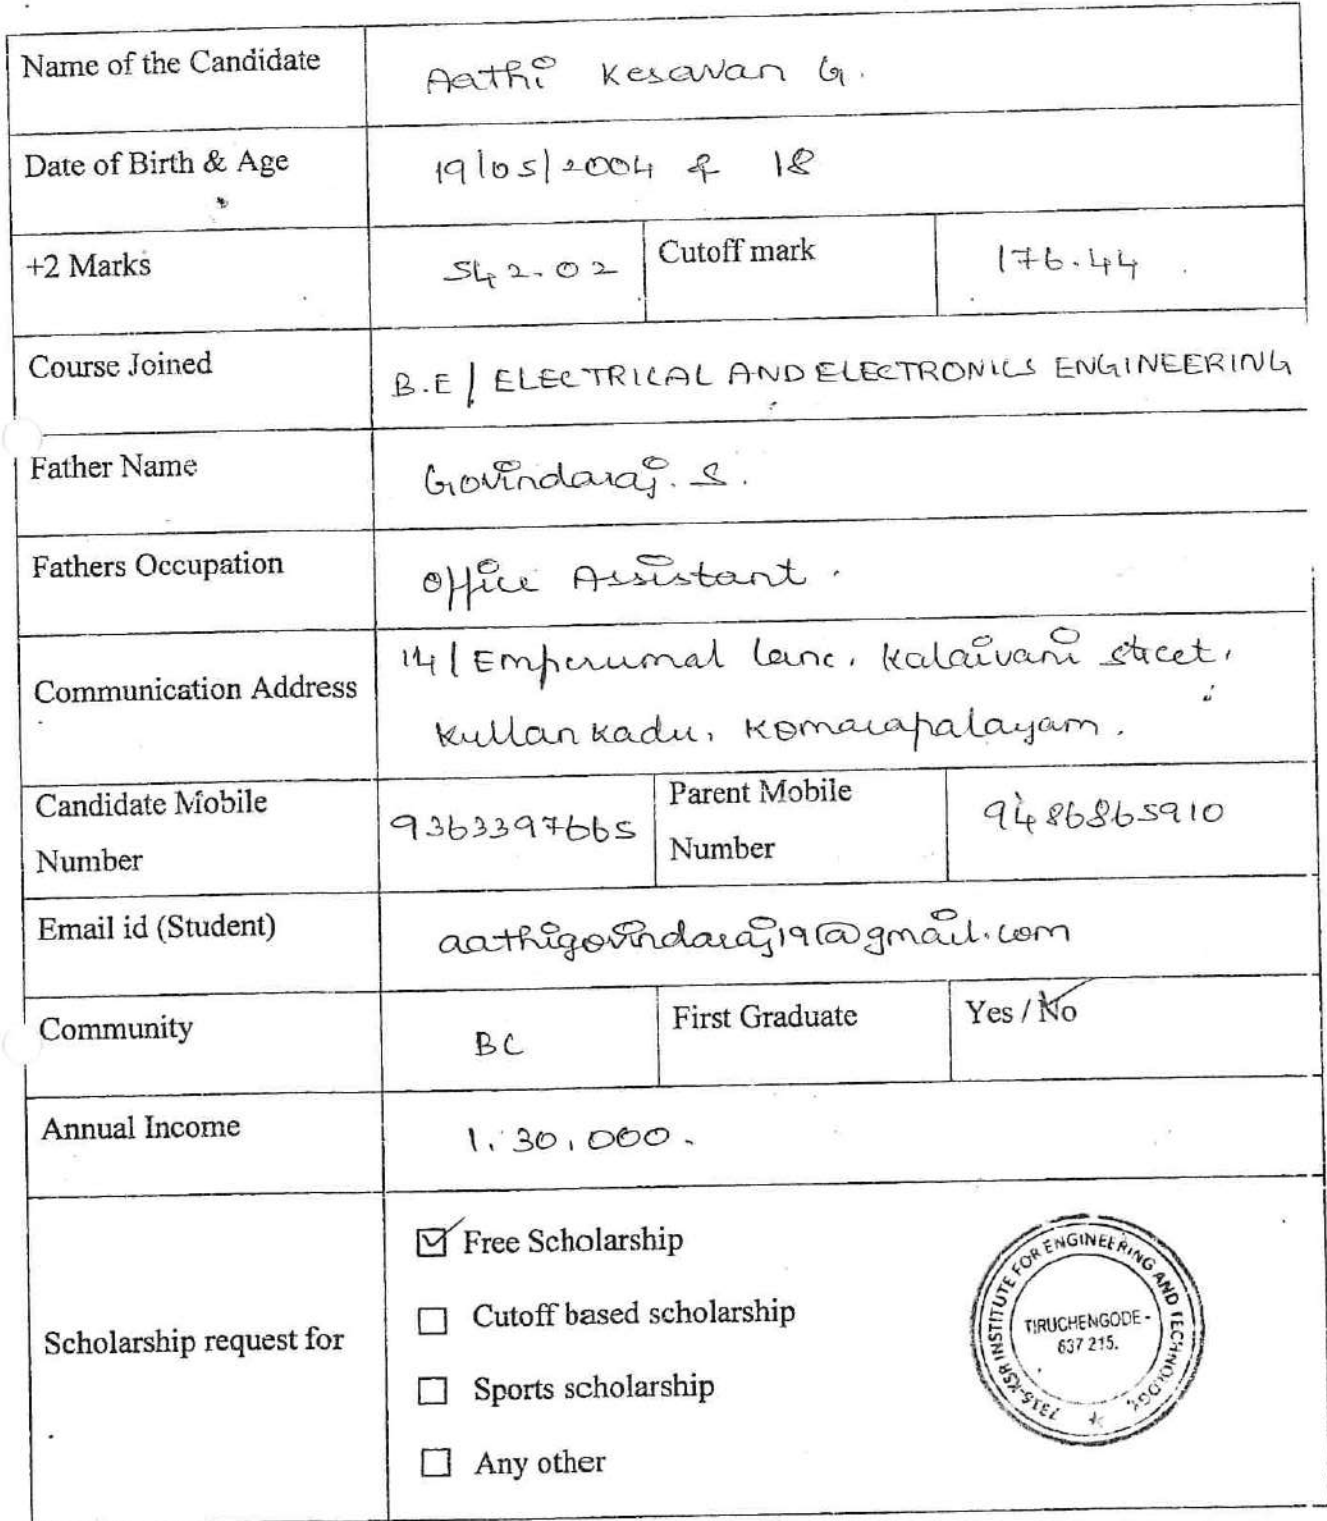 Name of the Candidate Aathi Kesavan G.
Date of Birth & Age 19/05/2004 & 18
+2 Marks 542.02 Cutoff mark 176.44
Course Joined B.E / ELECTRICAL AND ELECTRONICS ENGINEERING
Father Name Govindaraj. S.
Fathers Occupation Office Assistant.
Communication Address 14/Emperumal lane, Kalaivani street,
Kullankadu, Komarapalayam.
Candidate Mobile Number 9363397665 Parent Mobile Number 9486865910
Email id (Student) aathigovindaraj19@gmail.com
Community BC First Graduate Yes / No
Annual Income 1,30,000.
Scholarship request for
Free Scholarship
Cutoff based scholarship
Sports scholarship
Any other
7315-KSR INSTITUTE FOR ENGINEERING AND TECHNOLOGY,
TIRUCHENGODE -
637 215.